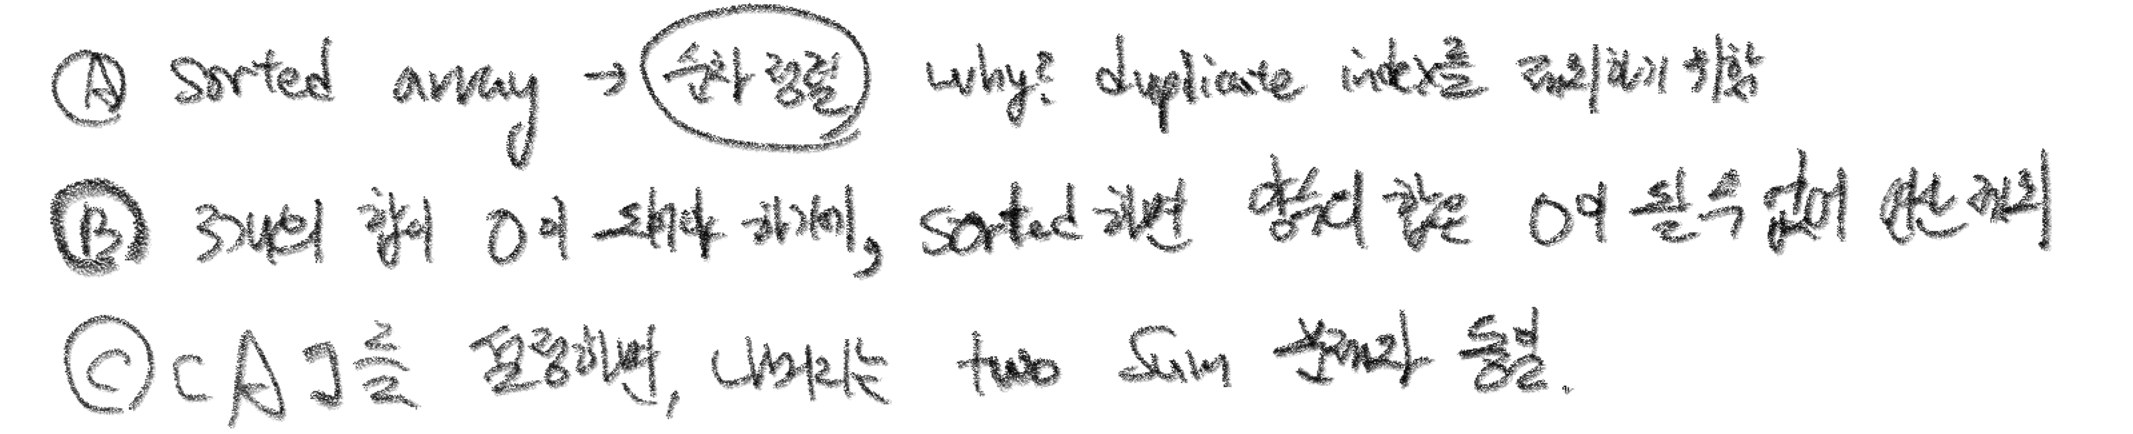 Ⓐ sorted array → 순차 정렬 why? duplicate index를 제외하기 위함
Ⓑ 3개의 합이 0이 되어야 하기에, sorted하면 양수의 합은 0이 될 수 없어 연산 제외
Ⓒ [A]를 고정하면, 나머지는 two sum 문제와 동일.